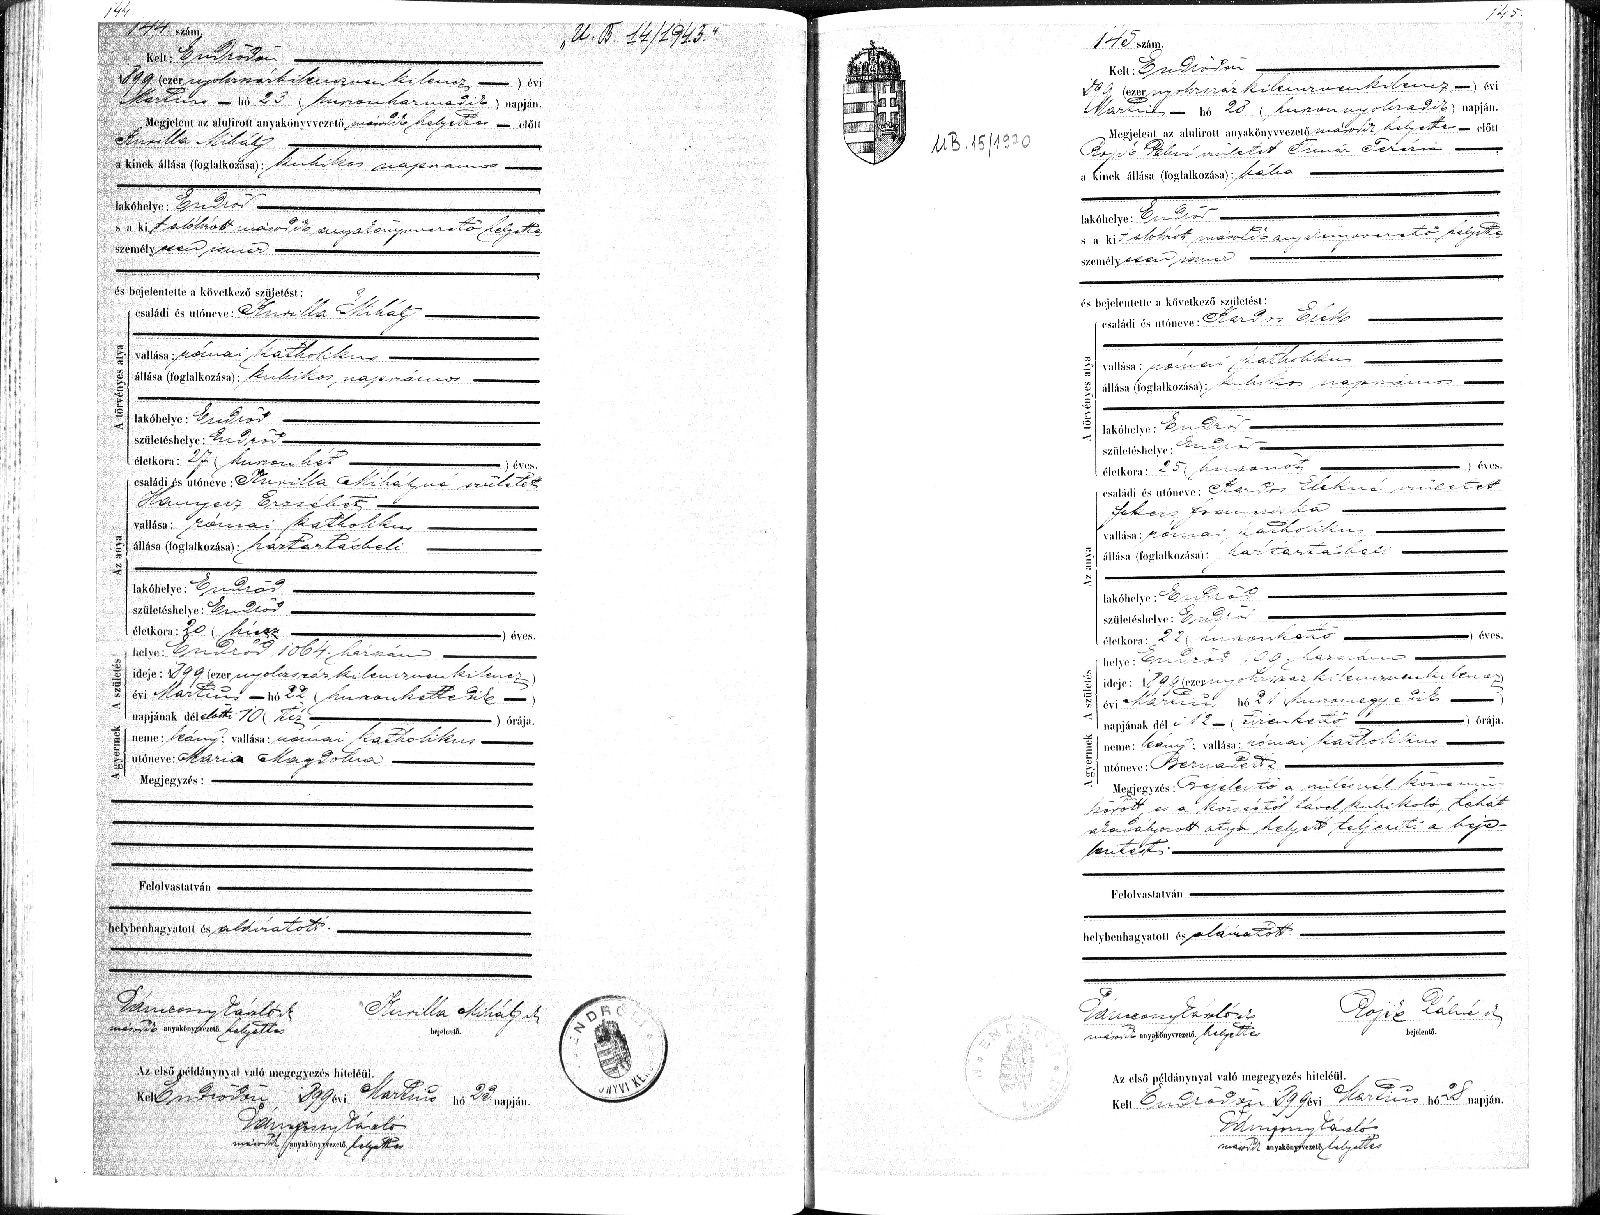 144
144 szám.
„U. B. 14/1943."
Kelt: Endrődön
1899 (ezer nyolcszázkilencvenkilenc) évi
Martius hó 23 (huszonharmadik) napján.
Megjelent az alulirott anyakönyvvezető második helyettes előtt
Mihály
a kinek állása (foglalkozása): kubikos napszámos
lakóhelye: Endrőd
s a kit alólirott második anyakönyvvezető helyettes
személyesen ismer
és bejelentette a következő születést:
A törvényes atya
családi és utóneve: Mihály
vallása: római katholikus
állása (foglalkozása): kubikos napszámos
lakóhelye: Endrőd
születéshelye: Endrőd
életkora: 27 (huszonhét) éves.
Az anya
családi és utóneve: Mihályné született
Hanyecz Erzsébet
vallása: római katholikus
állása (foglalkozása): háztartásbeli
lakóhelye: Endrőd
születéshelye: Endrőd
életkora: 20 (húsz) éves.
A születés
helye: Endrőd 1064. házszám
ideje: 1899 (ezer nyolcszázkilencvenkilenc)
évi Martius hó 22 (huszonkettedik)
napjának délelőtti 10 (tíz) órája.
A gyermek
neme: leány; vallása: római katholikus
utóneve: Mária Magdolna
Megjegyzés:
Felolvastatván
helybenhagyatott és aláiratott.
Mihály
második anyakönyvvezető helyettes
bejelentő.
Az első példánynyal való megegyezés hiteléül.
Kelt Endrődön 899 évi Martius hó 23 napján.
második anyakönyvvezető helyettes
145.
145 szám.
UB. 15/1920
Kelt: Endrődön
1899 (ezer nyolcszázkilencvenkilenc) évi
Martius hó 28 (huszonnyolcadik) napján.
Megjelent az alulirott anyakönyvvezető második helyettes előtt
Pálné született Teréz
a kinek állása (foglalkozása): bába
lakóhelye: Endrőd
s a kit alólirott második anyakönyvvezető helyettes
személyesen ismer
és bejelentette a következő születést:
A törvényes atya
családi és utóneve: Kardos Elek
vallása: római katholikus
állása (foglalkozása): kubikos napszámos
lakóhelye: Endrőd
születéshelye: Endrőd
életkora: 25 (huszonöt) éves.
Az anya
családi és utóneve: Kardos Elekné született
Franciska
vallása: római katholikus
állása (foglalkozása): háztartásbeli
lakóhelye: Endrőd
születéshelye: Endrőd
életkora: 22 (huszonkettő) éves.
A születés
helye: Endrőd 109 házszám
ideje: 1899 (ezer nyolcszázkilencvenkilenc)
évi Martius hó 21 huszonegyedik
napjának déli 12 (tizenkettő) órája.
A gyermek
neme: leány; vallása: római katholikus
utóneve: Bernadett
Megjegyzés: Bejelentő a szülésnél közremű-
ködött és a községtől távol kubikoló, tehát
akadályozott atya helyett teljesíti a beje-
lentést.
Felolvastatván
helybenhagyatott és aláiratott
Pálné
második anyakönyvvezető helyettes
bejelentő.
Az első példánynyal való megegyezés hiteléül.
Kelt Endrődön 899 évi Martius hó 28 napján.
második anyakönyvvezető helyettes